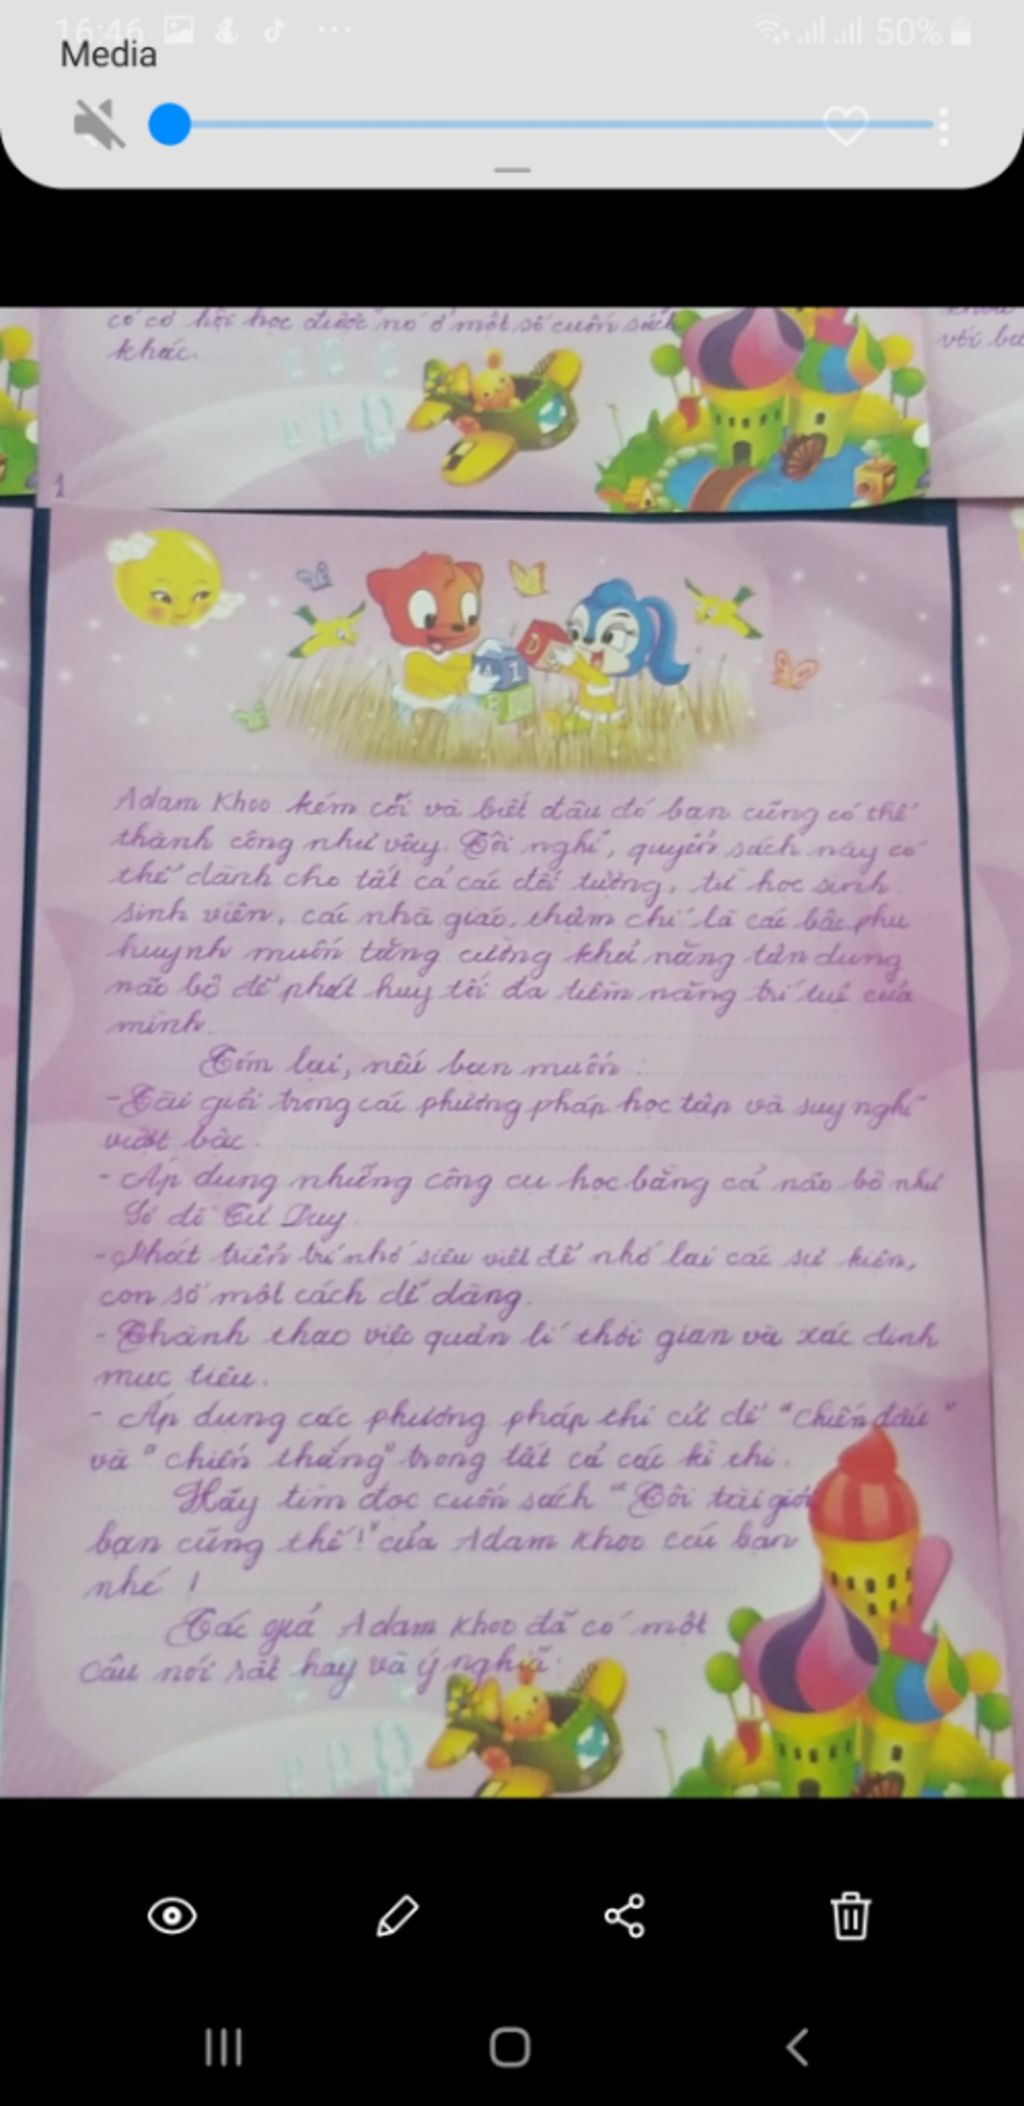 16:46
50%
Media
có cơ hội học được nó ở một số cuốn sách
khác.
với bạ
1
Adam Khoo kém cỏi và biết đâu đó bạn cũng có thể
thành công như vậy. Tôi nghĩ, quyển sách này có
thể dành cho tất cả các đối tượng, từ học sinh
sinh viên, các nhà giáo, thậm chí là các bậc phụ
huynh muốn tăng cường khả năng tận dụng
não bộ để phát huy tối đa tiềm năng trí tuệ của
mình.
Tóm lại, nếu bạn muốn :
- Tài giỏi trong các phương pháp học tập và suy nghĩ
vượt bậc.
- Áp dụng những công cụ học bằng cả não bộ như
Sơ đồ Tư Duy
- Phát triển trí nhớ siêu việt để nhớ lại các sự kiện,
con số một cách dễ dàng.
- Thành thạo việc quản lí thời gian và xác định
mục tiêu.
- Áp dụng các phương pháp thi cử để "chiến đấu"
và "chiến thắng" trong tất cả các kì thi.
Hãy tìm đọc cuốn sách "Tôi tài giỏi
bạn cũng thế!" của Adam Khoo các bạn
nhé !
Tác giả Adam Khoo đã có một
câu nói rất hay và ý nghĩa: